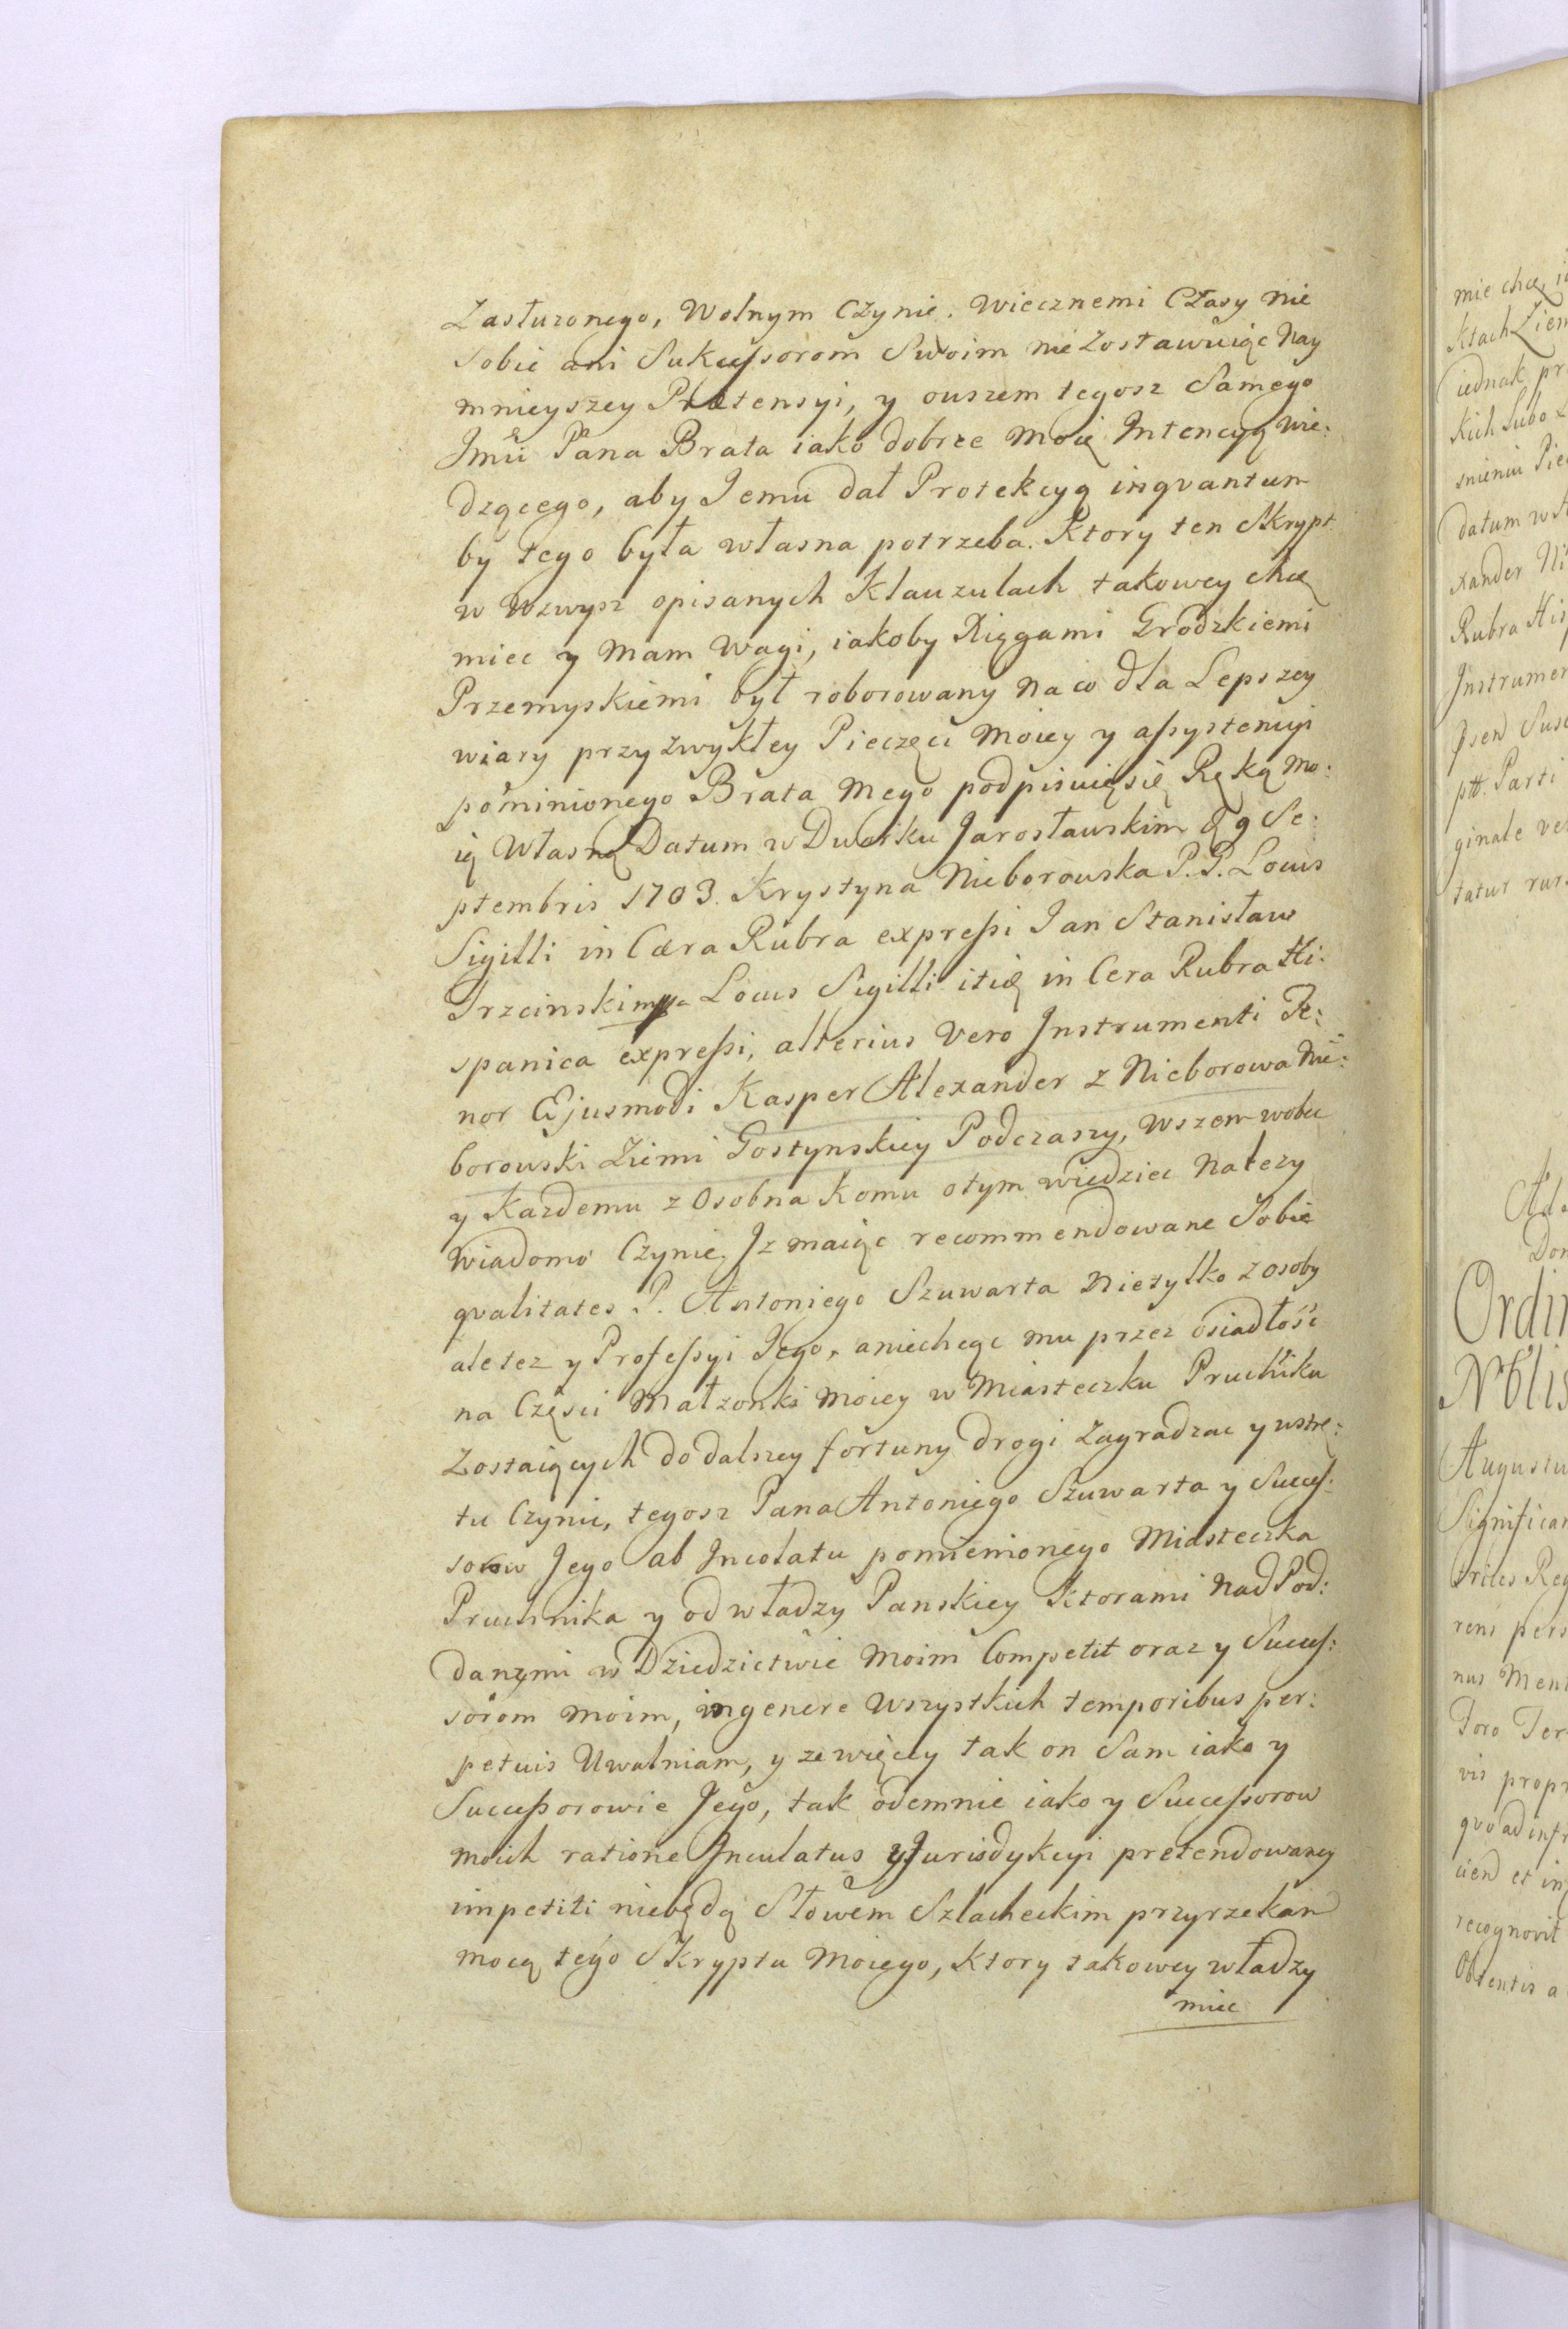 Zasłuzonego, Wolnym Czynie. Wiecznemi Czasy nie
Sobie ani Sukcessorom Swoim nie Zostawuiąc nay
mnieyszey Prætensyi, y ouszem tegosz Samego
Jmú Pana Brata iako dobrze moię Intencyą wie:
dzącego, aby Jemu dał Protekcyą inqvantum
by tego była własna potrzeba. Ktory ten Skrypt
w wzwysz opisanych Klauzulach takowey chcę
miec y mam wagi, iakoby Xięgami Grodzkiemi
Przemyskiemi był roborowany na co dla Lepszey
wiary przy zwykłey Pieczęci moiey y assystencyi
pominionego Brata mego podpisuię się Ręką mo:
ią Własną Datum w Dworku Jarosławskim d 9 Se:
ptembris 1703. Krystyna Nieborowska P. G. Locus
Sigilli in Cæra Rubra expressi Jan Stanisław
Trzcinski mp Locus Sigilli itię in Cera Rubra Hi:
spanica expressi, alterius Vero Instrumenti Te:
nor Ejusmodi Kasper Alexander z Nieborowa Nie:
borowski Ziemi Gostynskiey Podczaszy, Wszem wobec
y Kazdemu z Osobna Komu otym wiedziec nalezy
Wiadomo Czynie. Jz maiąc recommendowane Sobie
qvalitates P. Antoniego Szuwarta nietylko z osoby
ale tez y Professyi Jego, aniechcąc mu przez osiadłośc
na Części Małzonki moiey w Miasteczku Pruchniku
Zostaiących do dalszey fortuny drogi Zagradzac y wstrę:
tu Czynic, tegosz Pana Antoniego Szuwarta y Succes:
sorow Jego ab Incolatu pomienionego Miasteczka
Pruchnika y od władzy Panskiey Ktorami nad Pod:
danymi w Dziedzictwie Moim Competit oraz y Succes:
sorom moim, ingenere Wszystkich temporibus per:
petuis Uwalniam, y ze więcey tak on Sam iako y
Successorowie Jego, tak odemnie iako y Successorow
moich ratione Inculatus y Jurisdykcyi pretendowaney
impetiti niebędą Słowem Szlacheckim przyrzekam
mocą tego Skryptu Moiego, Ktory takowey władzy
miec
mie chcę
iednak
Kich Lubo
datum
xander Ni
Rubra His
Instrumen
ptt. Parti
ginale ve
tatur rur
Ordin
Nblis
Augustu
Significan
rens pers
nus Ment
foro Ter
vis propr
qvoad infr
ciend et in
recognovit
Obtentis a